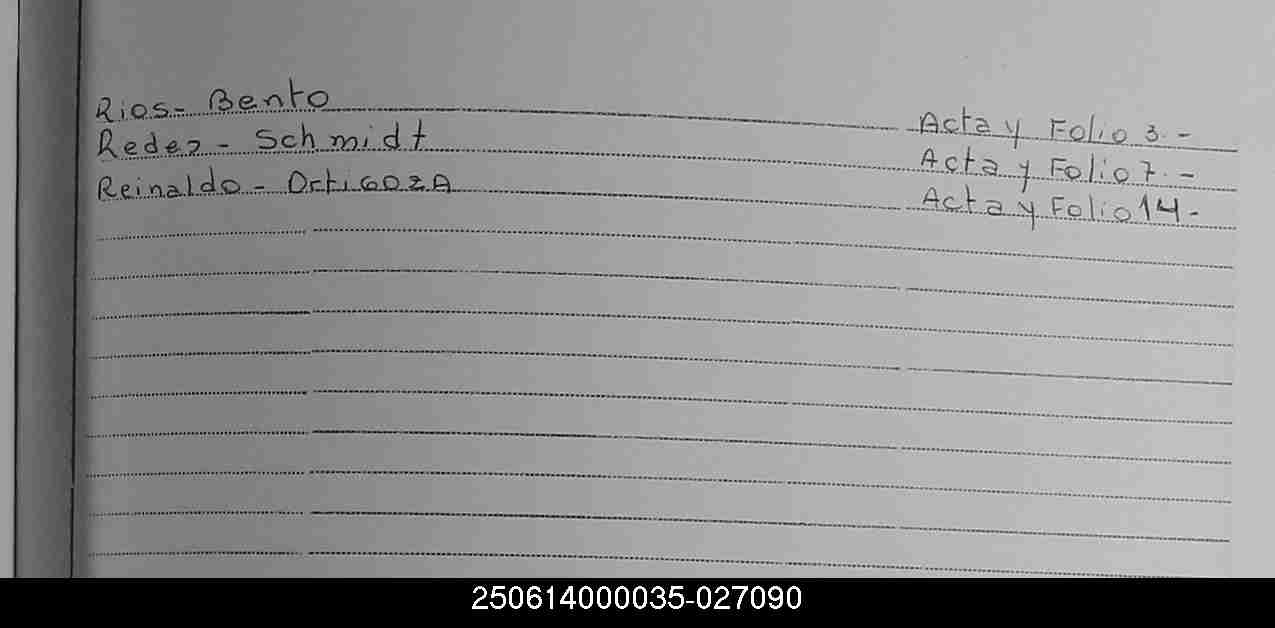 Rios- Bento Acta y Folio 3.-
Redez - Schmidt Acta y Folio 7.-
Reinaldo - OrtiGOZA Acta y Folio 14-
250614000035-027090